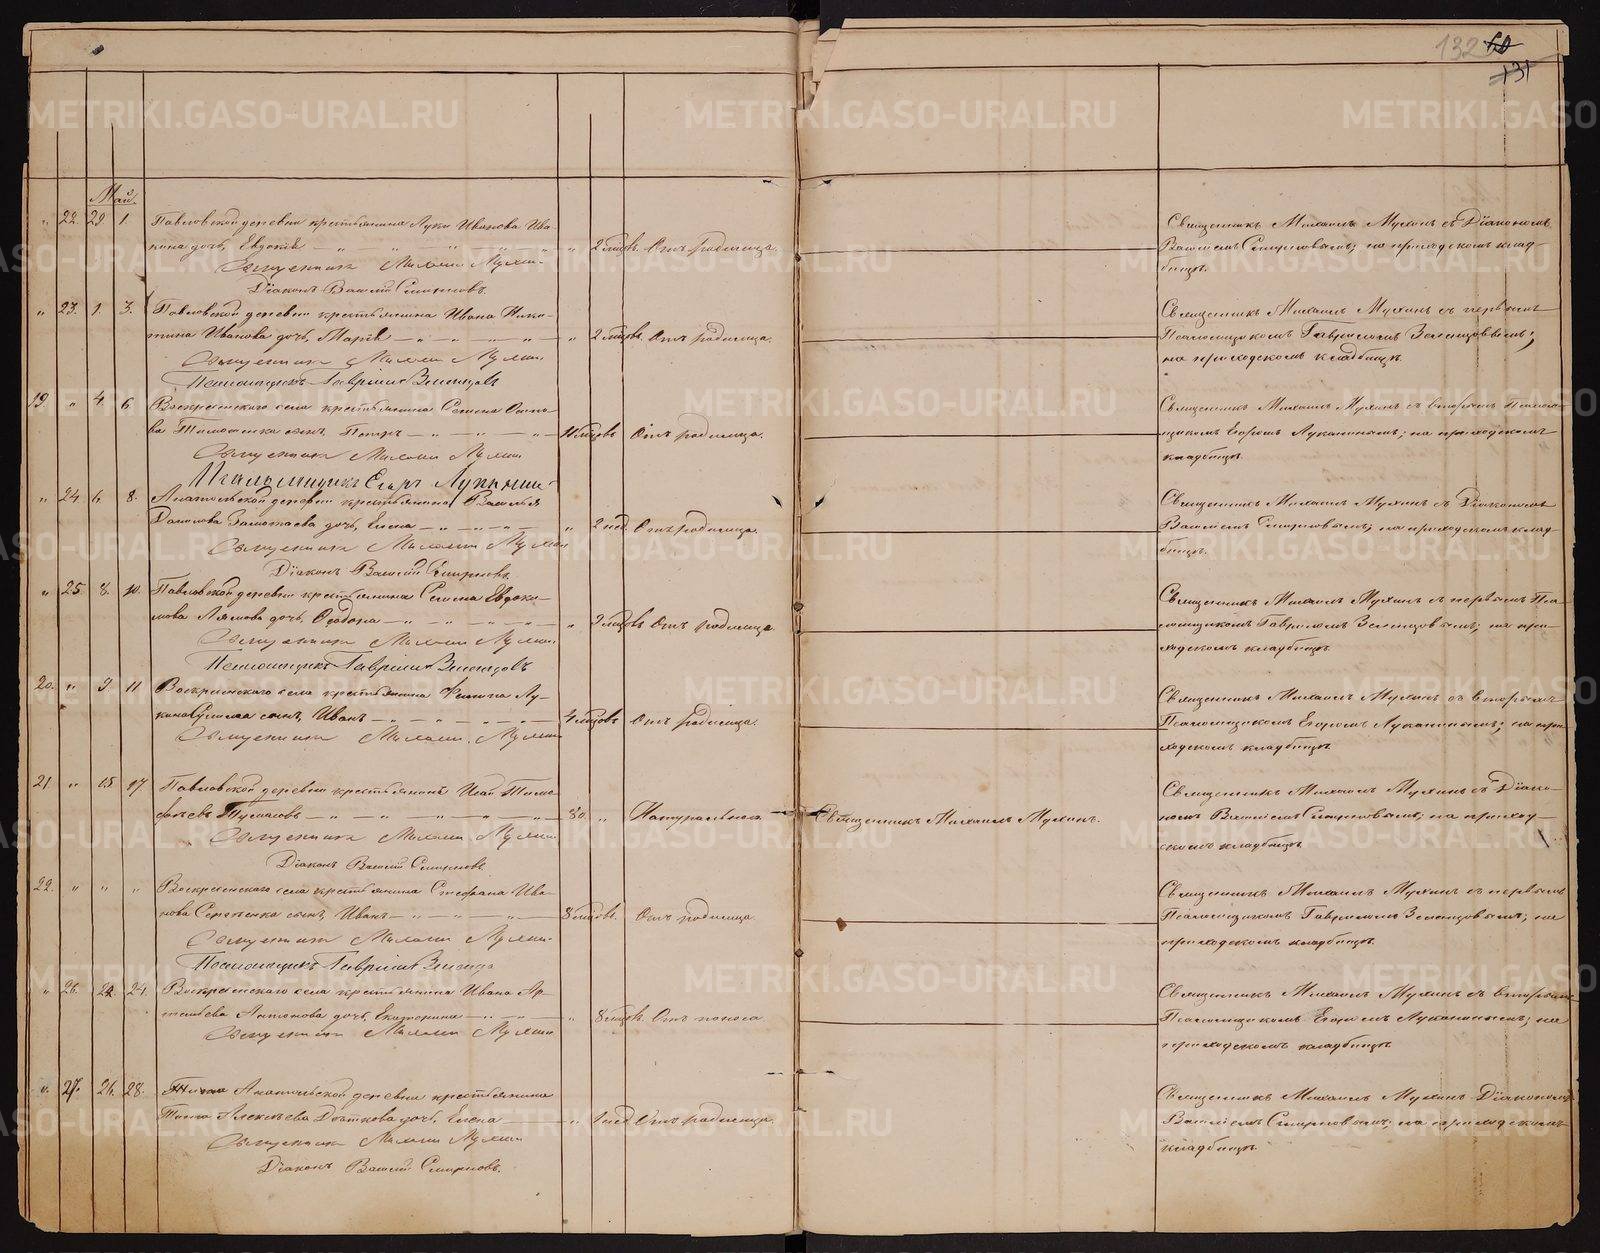 132
131
Май.
" 22. 29 1. Павловской деревни крестьянина Луки Иванова Ива-
кина дочь, Евдокія — " — " — " 2 мѣсяц. Отъ родимца.
Священникъ Михаилъ Мухинъ.
Діаконъ Василій Смирновъ.
Священникъ Михаилъ Мухинъ съ Діакономъ
Василіемъ Смирновымъ; на приходскомъ клад-
бищѣ.
" 23. 1. 3. Павловской деревни крестьянина Ивана
Иванова дочь, Марія — " — " — " 2 мѣсяц. Отъ родимца.
Священникъ Михаилъ Мухинъ.
Псаломщикъ Гавріилъ Зеленцовъ
Священникъ Михаилъ Мухинъ съ первымъ
Псаломщикомъ Гавріиломъ Зеленцовымъ;
на приходскомъ кладбищѣ.
19. " 4 6 Воскресенскаго села крестьянина
сынъ, Петръ — " — " — Отъ родимца.
Священникъ Михаилъ Мухинъ
Псаломщикъ Егоръ Луканинъ
Священникъ Михаилъ Мухинъ съ вторымъ Псалом-
щикомъ Егоромъ Луканинымъ; на приходскомъ
кладбищѣ.
" 24 6. 8. деревни крестьянина Василья
Данилова дочь, Елена — " — " — " 2 нед. Отъ родимца.
Священникъ Михаилъ Мухинъ
Діаконъ Василій Смирновъ.
Священникъ Михаилъ Мухинъ съ Діакономъ
Василіемъ Смирновымъ; на приходскомъ клад-
бищѣ.
" 25. 8. 10. Павловской деревни крестьянина Семена Евдоки-
мова дочь, Ѳеодора — " — " — " Отъ родимца
Священникъ Михаилъ Мухинъ
Псаломщикъ Гавріилъ Зеленцовъ
Священникъ Михаилъ Мухинъ съ первымъ Пса-
ломщикомъ Гавріиломъ Зеленцовымъ; на при-
ходскомъ кладбищѣ.
20. " 9. 11 Воскресенскаго села крестьянина
сынъ, Иванъ — " — " — Отъ родимца.
Священникъ Михаилъ Мухинъ
Священникъ Михаилъ Мухинъ съ вторымъ
Псаломщикомъ Егоромъ Луканинымъ; на при-
ходскомъ кладбищѣ.
21 " 15 17 Павловской деревни крестьянинъ Исай Тимо-
фѣевъ — " — " — 80. " Натурально. Священникъ Михаилъ Мухинъ.
Священникъ Михаилъ Мухинъ
Діаконъ Василій Смирновъ.
Священникъ Михаилъ Мухинъ съ Діако-
номъ Василіемъ Смирновымъ; на приход-
скомъ кладбищѣ.
22. " " " Воскресенскаго села крестьянина Стефана Ива-
нова сынъ, Иванъ — " — " — 8 мѣсяц. Отъ родимца.
Священникъ Михаилъ Мухинъ.
Псаломщикъ Гавріилъ Зеленцовъ
Священникъ Михаилъ Мухинъ съ первымъ
Псаломщикомъ Гавріиломъ Зеленцовымъ; на
приходскомъ кладбищѣ.
" 26. 22. 24. Воскресенскаго села крестьянина Ивана Ар-
темьева Антонова дочь, Екатерина — " — " 8 мѣсяц. Отъ поноса.
Священникъ Михаилъ Мухинъ
Священникъ Михаилъ Мухинъ съ вторымъ
Псаломщикомъ Егоромъ Луканинымъ; на
приходскомъ кладбищѣ.
" 27. 26. 28. деревни крестьянина
Алексѣева дочь, Елена — " 1 нед. Отъ родимца.
Священникъ Михаилъ Мухинъ
Діаконъ Василій Смирновъ.
Священникъ Михаилъ Мухинъ Діакономъ
Василіемъ Смирновымъ; на приходскомъ
кладбищѣ.
METRIKI.GASO-URAL.RU